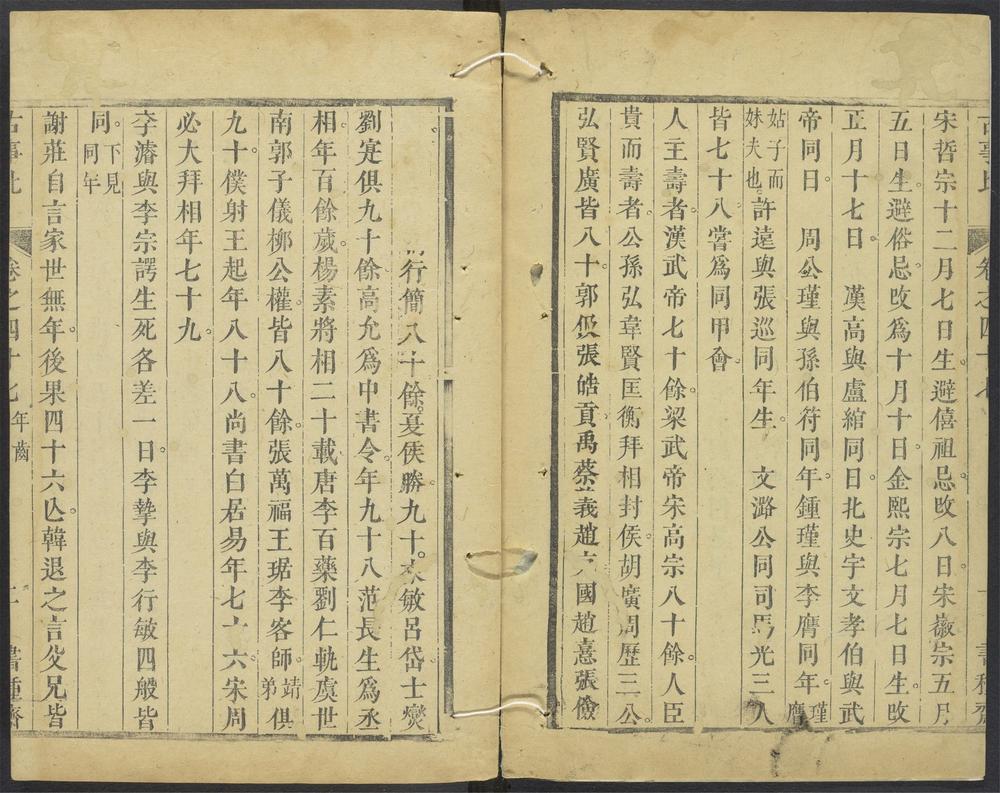 宋哲宗十二月七日生避僖祖忌攺八日宋徽宗五月
五日生避俗忌攺爲十月十日金熙宗七月七日生攺
正月十七日　漢高與盧綰同日北史宇文孝伯與武
帝同日　周公瑾與孫伯符同年鍾瑾與李膺同年瑾膺
姑子而妹夫也許遠與張巡同年生　文潞公同司馬光三人
皆七十八嘗爲同甲會
人主壽者漢武帝七十餘梁武帝宋高宗八十餘人臣
貴而壽者公孫弘韋賢匡衡拜相封侯胡廣周歷三公
弘賢廣皆八十郭伋張皓貢禹蔡義趙國趙憙張儉
行簡八十餘夏侯勝九十敏呂岱士燮
劉寔俱九十餘高允爲中書令年九十八范長生爲丞
相年百餘歲楊素將相二十載唐李百藥劉仁軌虞世
南郭子儀栁公權皆八十餘張萬福王琚李客師靖弟俱
九十僕射王起年八十八尚書白居易年七十六宋周
必大拜相年七十九
李濬與李宗諤生死各差一日李摯與李行敏四般皆
同下見同年
謝莊自言家世無年後果四十六亾韓退之言父兄皆
古事比　卷之四十七　年齒　書種齋